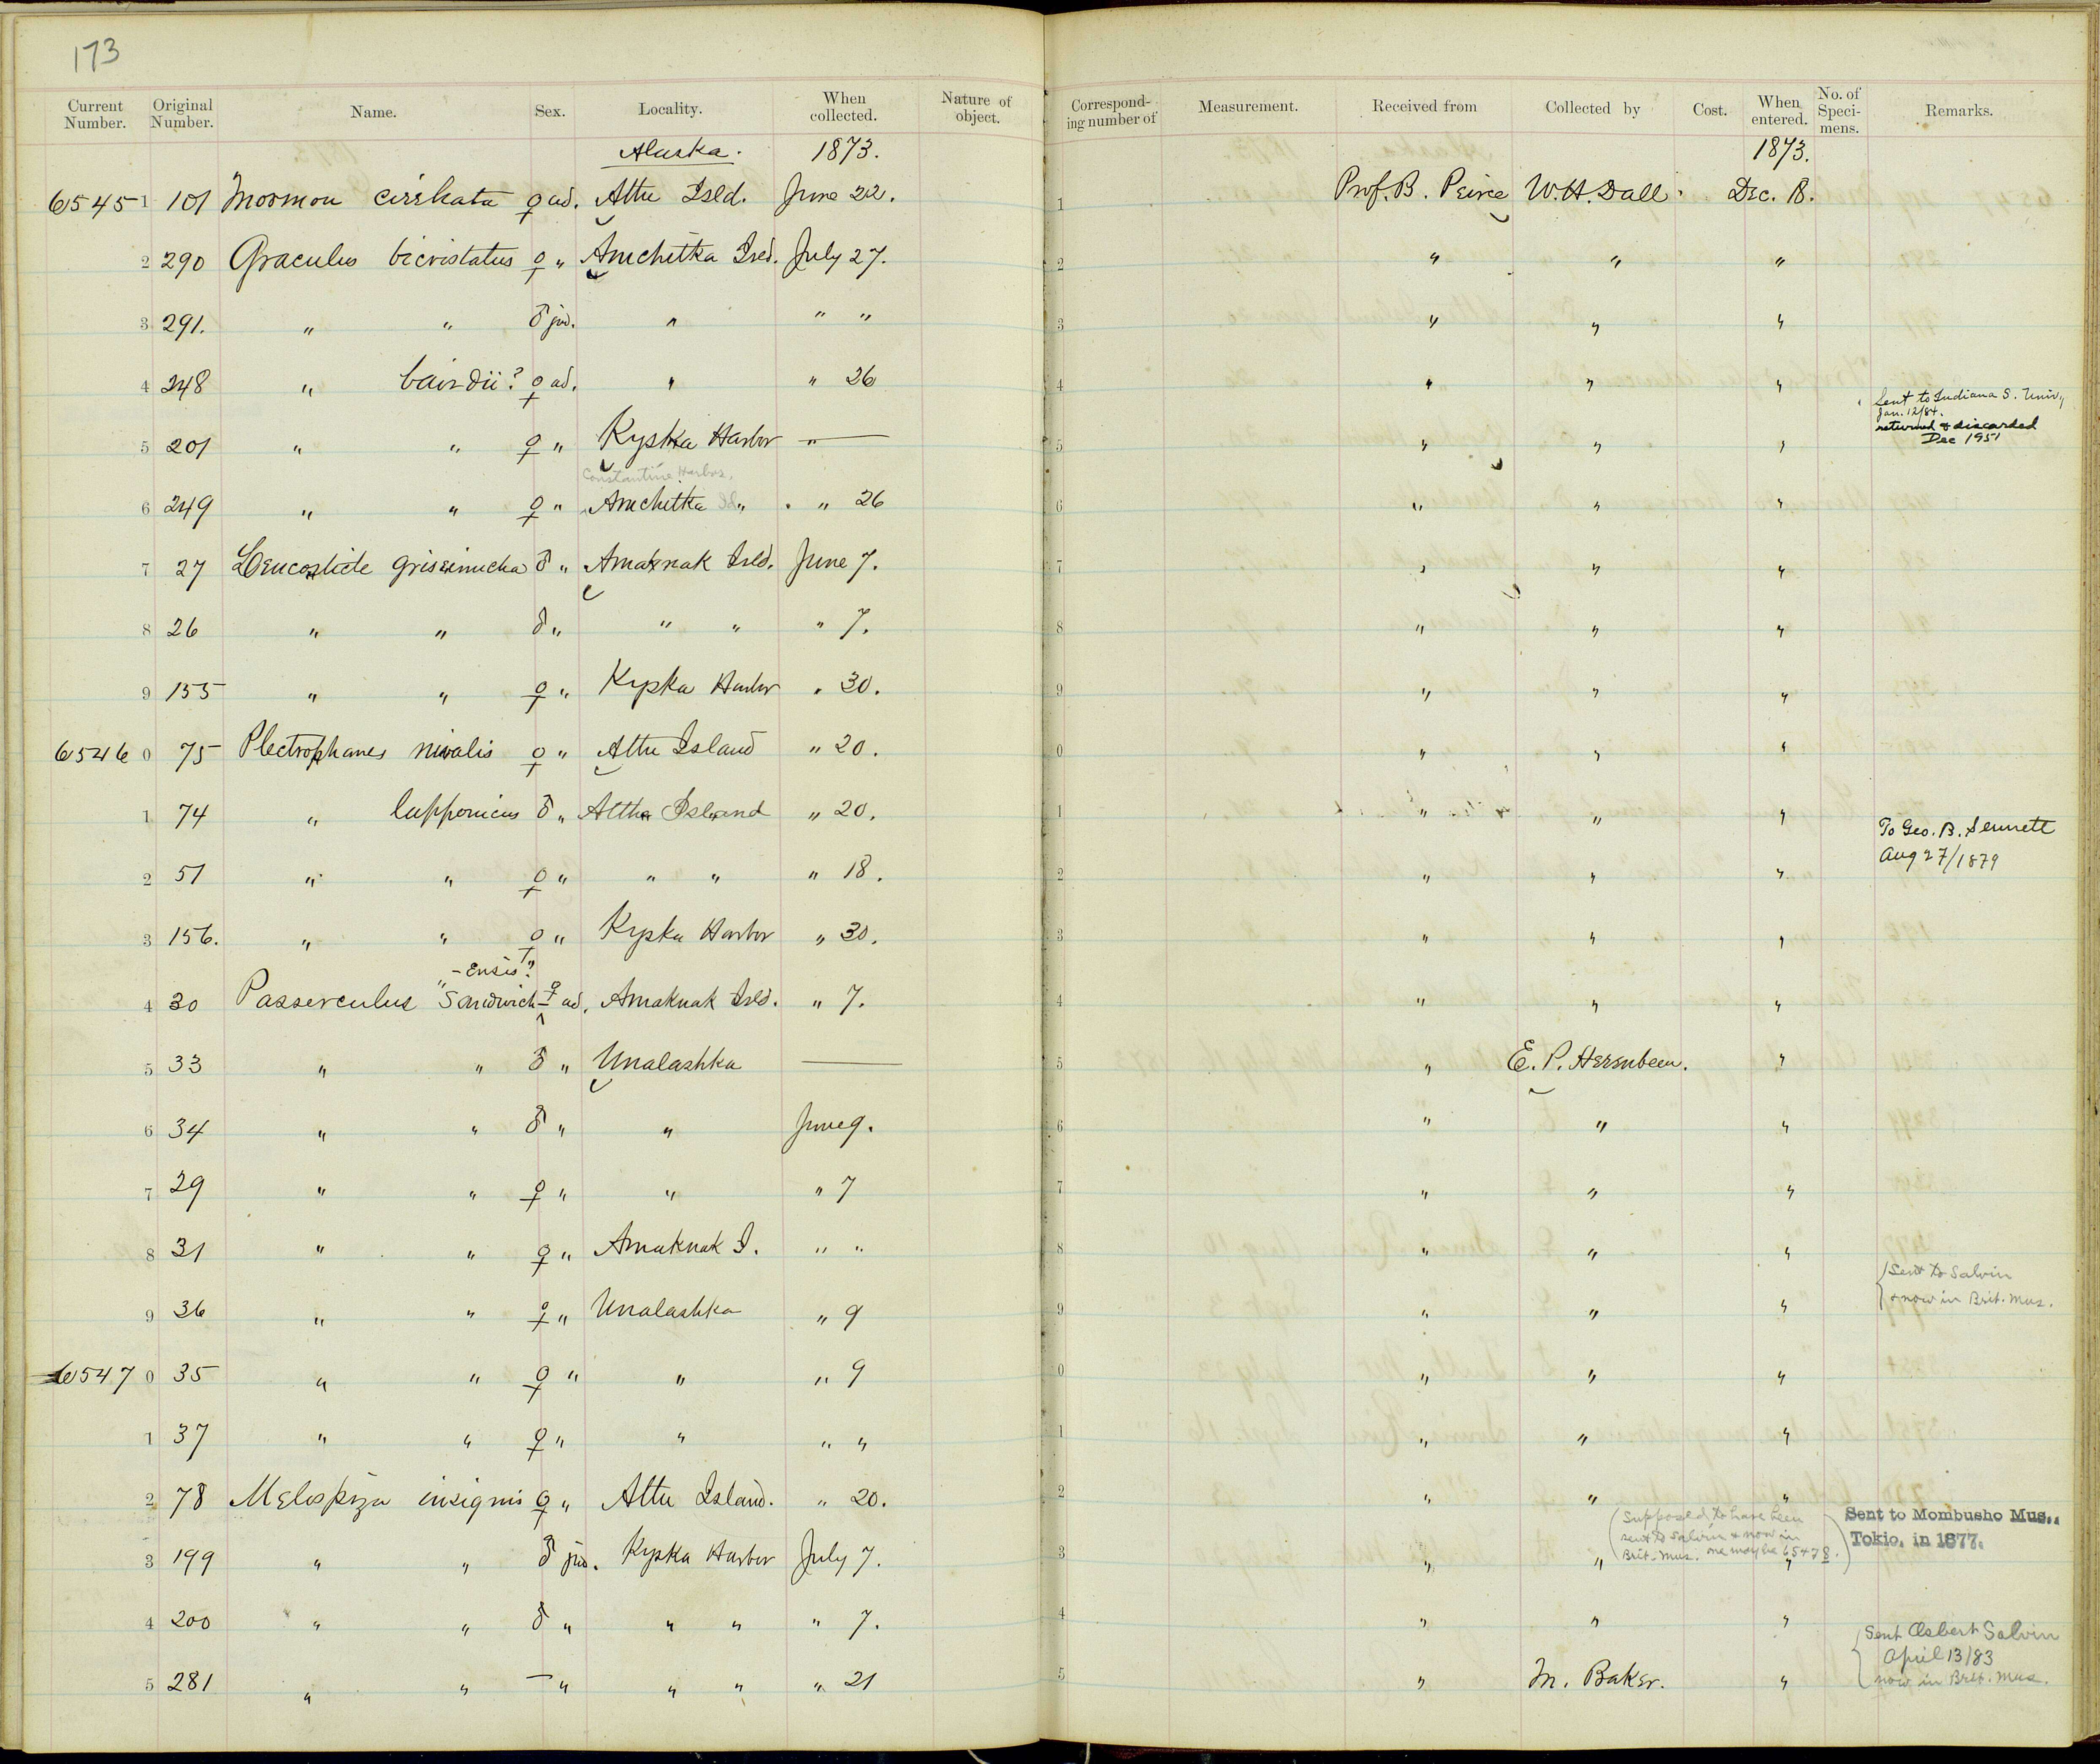 173
Current Number. Original Number. Name. Sex. Locality. When collected. Nature of object. Corresponding number of Measurement. Received from Collected by Cost. When entered. No. of Specimens. Remarks.
Alaska. 1873. 1873.
6545 1 101 Mormon cirrhata ♀ ad. Attu Isld. June 22. 1 Prof. B. Peirce W. H. Dall. Dec. 18.
2 290 Graculus bicristatus ♀ " Amchitka Isld. July 27. 2 " " "
3 291. " " ♂ juv. " " " 3 " " "
4 248 " bairdii? ♀ ad. " " 26 4 " " "
Sent to Indiana S. Univ,
Jan. 12/84.
returned & discarded
Dec 1951
5 201 " " ♀ " Kyska Harbor " — 5 " " "
Constantine Harbor,
6 249 " " ♀ " Amchitka Id. " " 26 6 " " "
7 27 Leucosticte griseinucha ♂ " Amaknak Isld. June 7. 7 " " "
8 26 " " ♂ " " " " 7. 8 " " "
9 155 " " ♀ " Kyska Harbor " 30. 9 " " "
6546 0 75 Plectrophanes nivalis ♀ " Attu Island " 20. 0 " " "
1 74 " lapponicus ♂ " Attu Island " 20. 1 " " "
To Geo. B. Sennett
Aug 27/1879
2 51 " " ♀ " " " " 18. 2 " " "
3 156. " " ♀ " Kyska Harbor " 30. 3 " " "
-ensis?
4 30 Passerculus "Sandwich- ♀ ad. Amaknak Isld. " 7. 4 " " "
5 33 " " ♂ " Unalashka — 5 " E. P. Herendeen. "
6 34 " " ♂ " " June 9. 6 " " "
7 29 " " ♀ " " " 7 7 " " "
8 31 " " ♀ " Amaknak I. " " 8 " " "
Sent to Salvin
& now in Brit. Mus.
9 36 " " ♀ " Unalashka " 9 9 " " "
6547 0 35 " " ♀ " " " 9 0 " " "
1 37 " " ♀ " " " " 1 " " "
2 78 Melospiza insignis ♀ " Attu Island. " 20. 2 " " "
(Supposed to have been
sent to Salvin & now in
Brit. Mus. one may be 65478.)
Sent to Mombusho Mus.,
Tokio, in 1877.
3 199 " " ♂ juv. Kyska Harbor July 7. 3 " " "
4 200 " " ♂ " " " " 7. 4 " " "
Sent Osbert Salvin
April 13/83
now in Brit. Mus.
5 281 " " — " " " " 21 5 " M. Baker. "